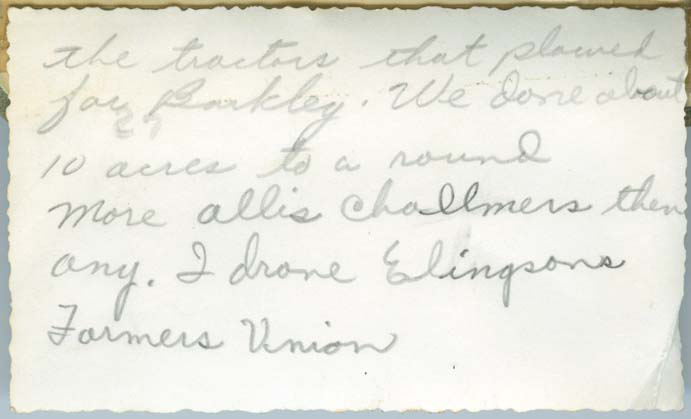 the tractors that plowed
for Barkley. We done about
27
10 acres to a round
More allis Challmers then
any. I drone Elingsons
Farmers Union